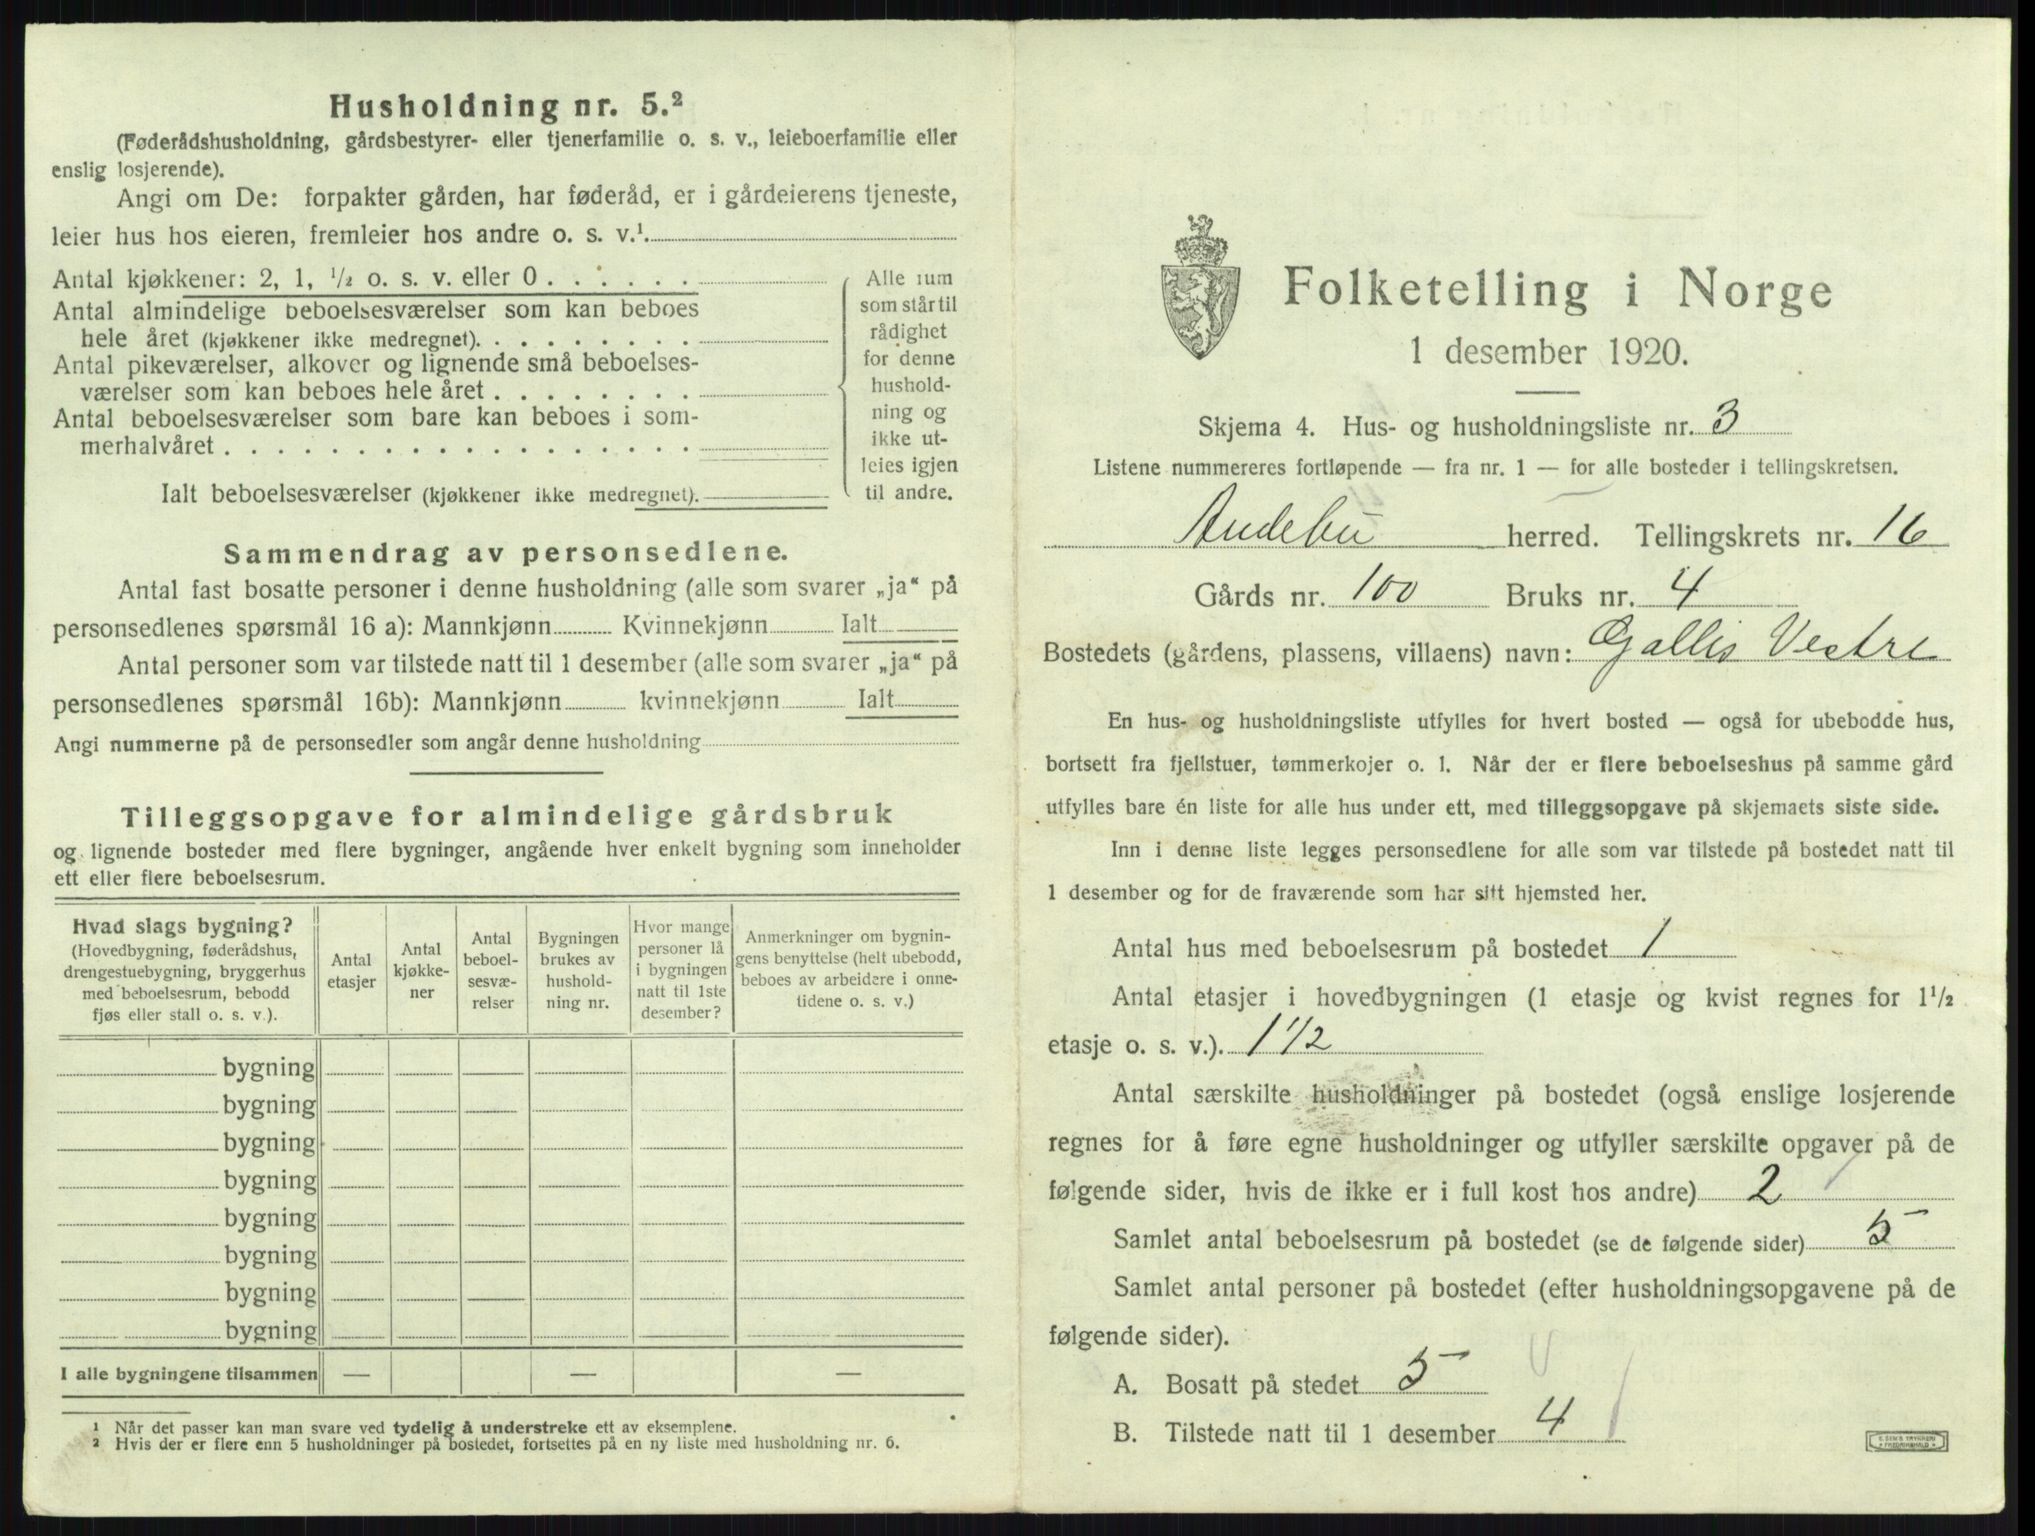 Husholdning nr. 5.²
(Føderådshusholdning, gårdsbestyrer- eller tjenerfamilie o. s. v., leieboerfamilie eller
enslig losjerende).
Angi om De: forpakter gården, har føderåd, er i gårdeierens tjeneste,
leier hus hos eieren, fremleier hos andre o. s. v.¹
Antal kjøkkener: 2, 1, ½ o. s. v. eller 0 . . . . . .
Antal almindelige beboelsesværelser som kan beboes
hele året (kjøkkener ikke medregnet). . . . . . . . .
Antal pikeværelser, alkover og lignende små beboelses-
værelser som kan beboes hele året . . . . . . . .
Antal beboelsesværelser som bare kan beboes i som-
merhalvåret . . . . . . . . . . . . . . . . . .
Ialt beboelsesværelser (kjøkkener ikke medregnet).
Alle rum
som står til
rådighet
for denne
hushold-
ning og
ikke ut-
leies igjen
til andre.
Sammendrag av personsedlene.
Antal fast bosatte personer i denne husholdning (alle som svarer „ja“ på
personsedlenes spørsmål 16 a): Mannkjønn Kvinnekjønn Ialt
Antal personer som var tilstede natt til 1 desember (alle som svarer „ja“ på
personsedlenes spørsmål 16b): Mannkjønn kvinnekjønn Ialt
Angi nummerne på de personsedler som angår denne husholdning
Tilleggsopgave for almindelige gårdsbruk
og lignende bosteder med flere bygninger, angående hver enkelt bygning som inneholder
ett eller flere beboelsesrum.
Hvad slags bygning?
(Hovedbygning, føderådshus,
drengestuebygning, bryggerhus
med beboelsesrum, bebodd
fjøs eller stall o. s. v.).
Antal
etasjer
Antal
kjøkke-
ner
Antal
beboel-
sesvæ-
relser
Bygningen
brukes av
hushold-
ning nr.
Hvor mange
personer lå
i bygningen
natt til 1ste
desember?
Anmerkninger om bygnin-
gens benyttelse (helt ubebodd,
beboes av arbeidere i onne-
tidene o. s. v.)
bygning
bygning
bygning
bygning
bygning
bygning
bygning
bygning
I alle bygningene tilsammen — — —
¹ Når det passer kan man svare ved tydelig å understreke ett av eksemplene.
² Hvis der er flere enn 5 husholdninger på bostedet, fortsettes på en ny liste med husholdning nr. 6.
Folketelling i Norge
1 desember 1920.
Skjema 4. Hus- og husholdningsliste nr. 3
Listene nummereres fortløpende — fra nr. 1 — for alle bosteder i tellingskretsen.
Andebu herred. Tellingskrets nr. 16
Gårds nr. 100 Bruks nr. 4
Bostedets (gårdens, plassens, villaens) navn: Gallis Vestre
En hus- og husholdningsliste utfylles for hvert bosted — også for ubebodde hus,
bortsett fra fjellstuer, tømmerkojer o. l. Når der er flere beboelseshus på samme gård
utfylles bare én liste for alle hus under ett, med tilleggsopgave på skjemaets siste side.
Inn i denne liste legges personsedlene for alle som var tilstede på bostedet natt til
1 desember og for de fraværende som har sitt hjemsted her.
Antal hus med beboelsesrum på bostedet 1
Antal etasjer i hovedbygningen (1 etasje og kvist regnes for 1½
etasje o. s. v.). 1 1/2
Antal særskilte husholdninger på bostedet (også enslige losjerende
regnes for å føre egne husholdninger og utfyller særskilte opgaver på de
følgende sider, hvis de ikke er i full kost hos andre) 2
Samlet antal beboelsesrum på bostedet (se de følgende sider) 5
Samlet antal personer på bostedet (efter husholdningsopgavene på de
følgende sider).
A. Bosatt på stedet 5
B. Tilstede natt til 1 desember 4